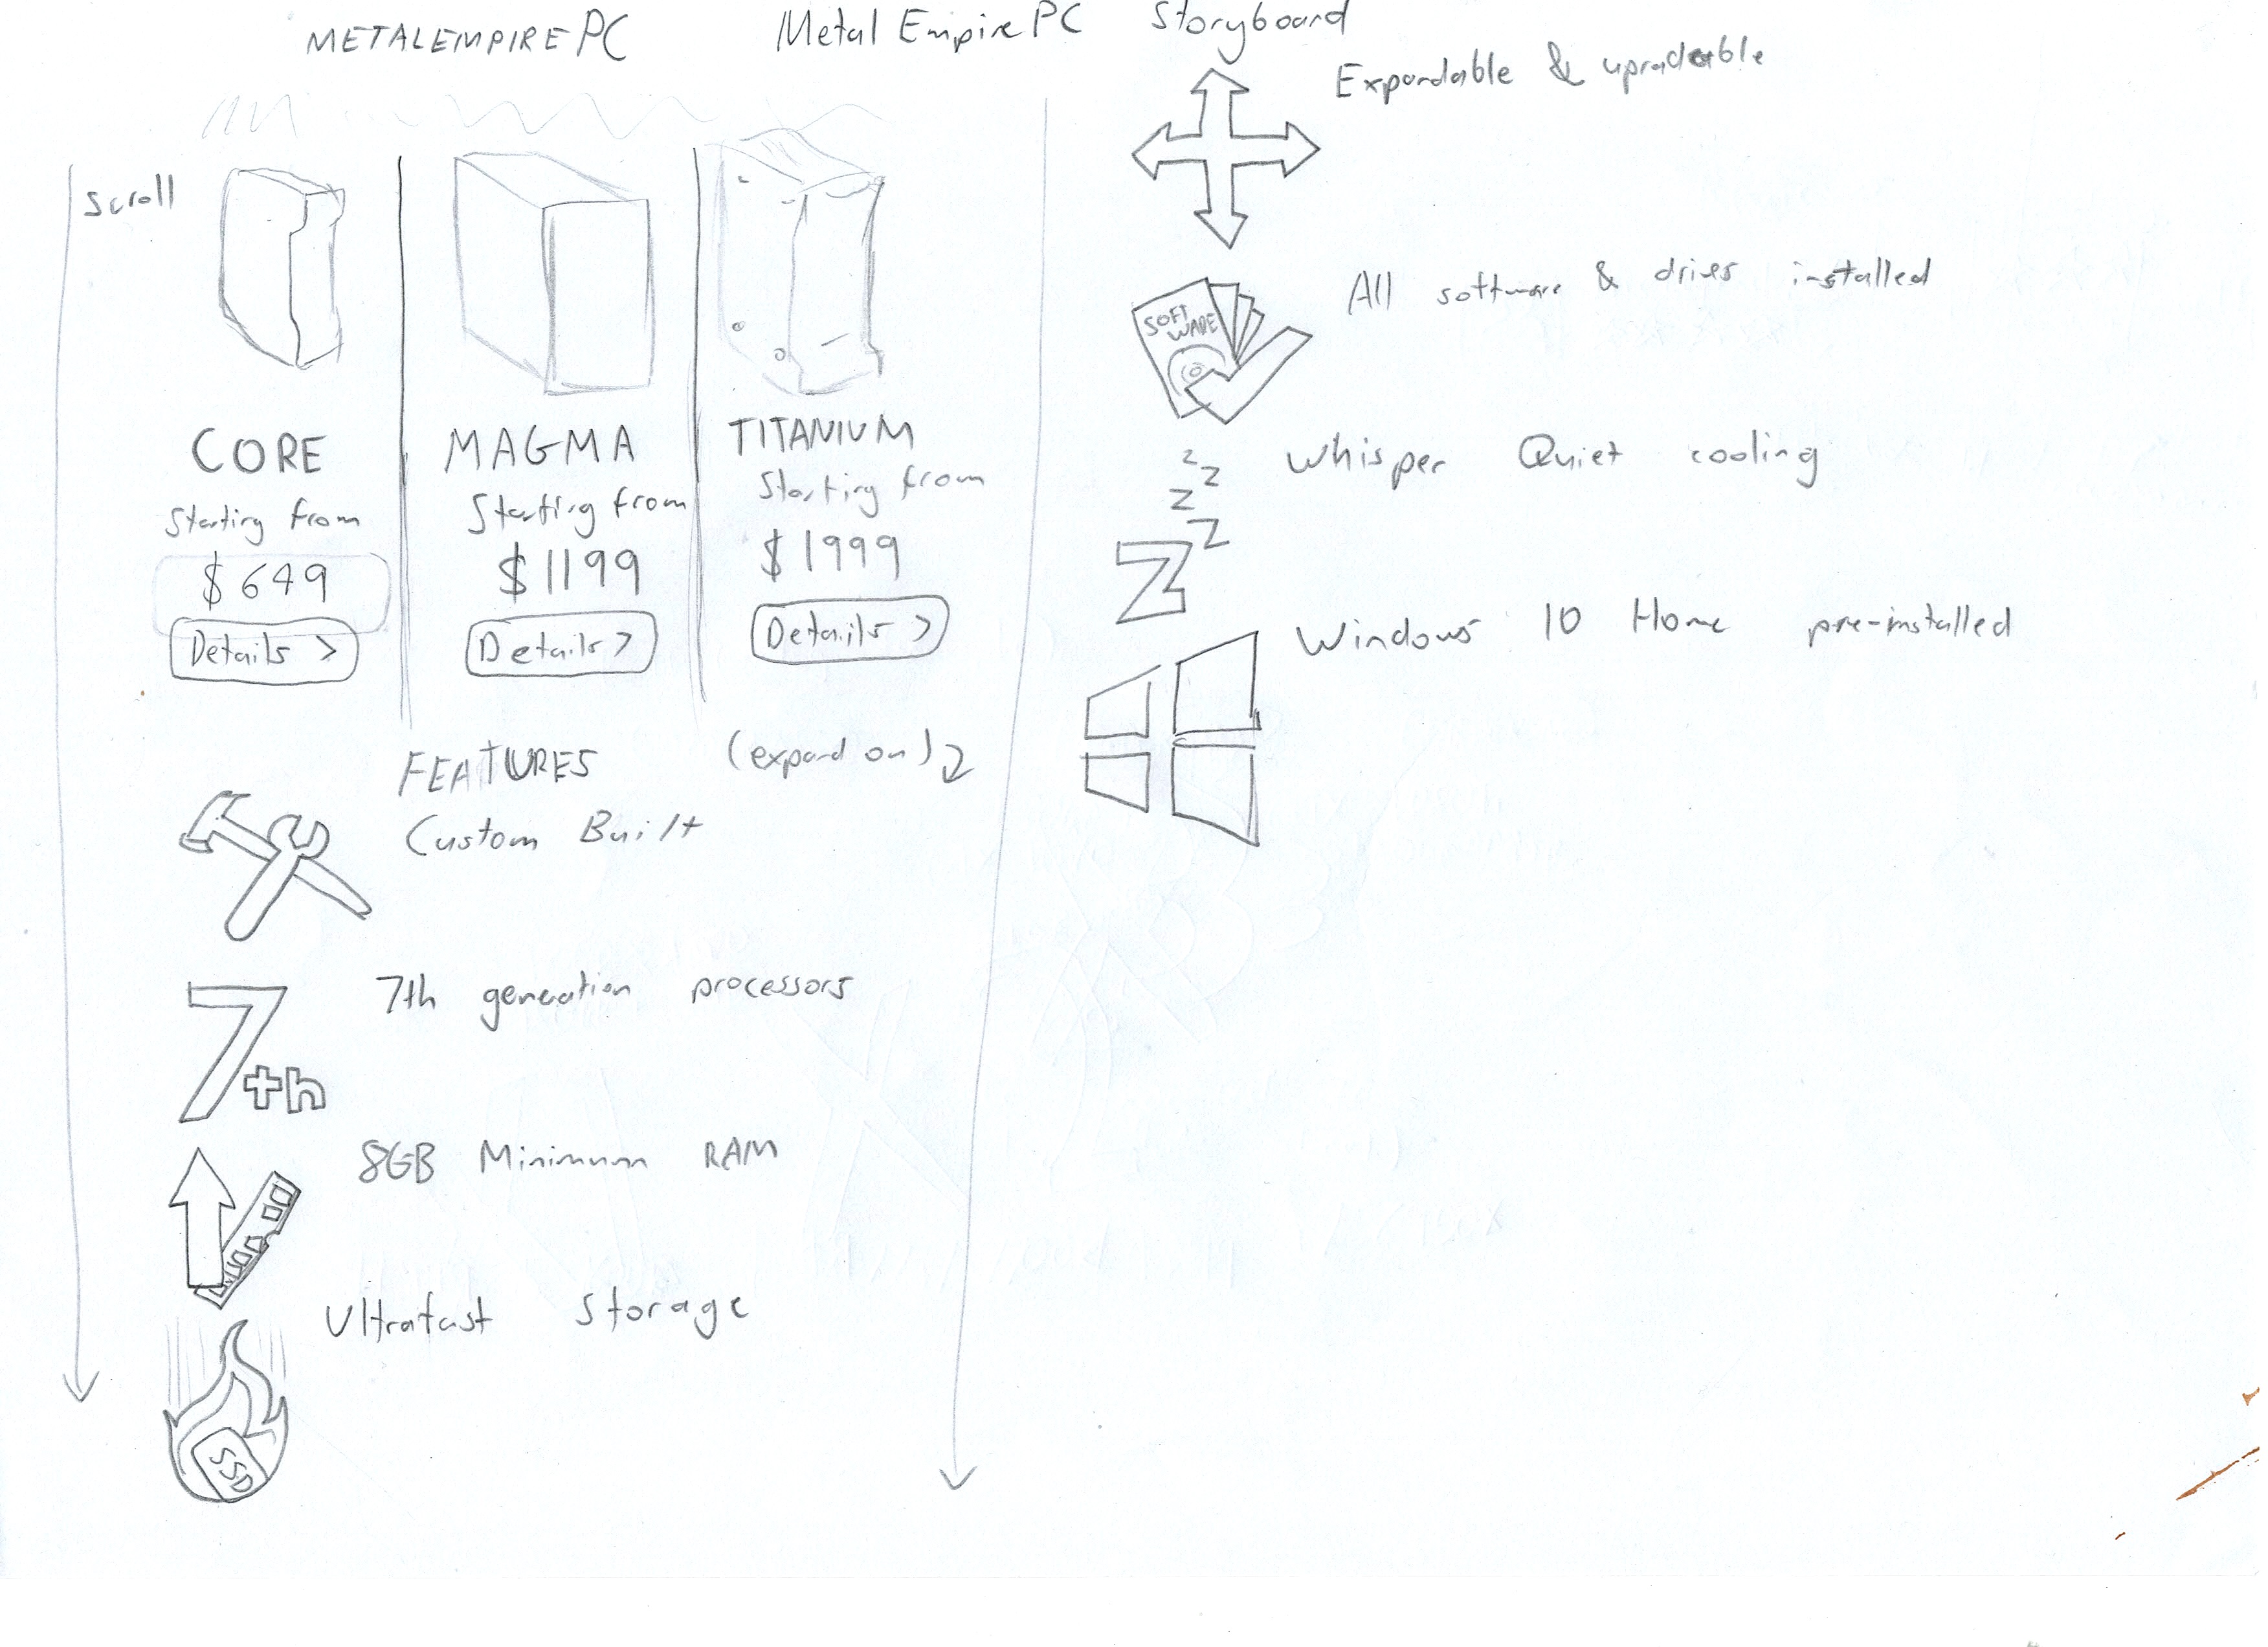 METALEMPIRE PC
Metal Empire PC Storyboard
Scroll
CORE
Starting from
$649
Details >
MAGMA
Starting from
$1199
Details >
TITANIUM
Starting from
$1999
Details >
FEATURES (expand on)
Custom Built
7th generation processors
7th
8GB Minimum RAM
Ultrafast Storage
SSD
Expandable & upradeable
All software & drives installed
SOFT
WARE
Whisper Quiet cooling
z
z
z
z
Z
Windows 10 Home pre-installed